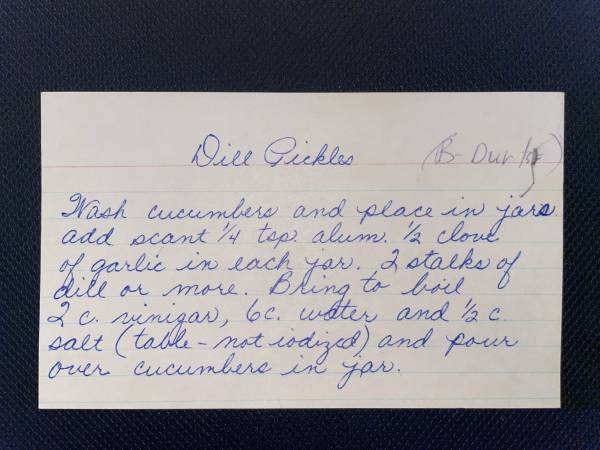 Dill Pickles
Wash cucumbers and place in jars
add scant 1/4 tsp. alum. 1/2 clove
of garlic in each jar. 2 stalks of
dill or more. Bring to boil
2 c. vinigar, 6c. water and 1/2 c.
salt (table - not iodized) and pour
over cucumbers in jar.